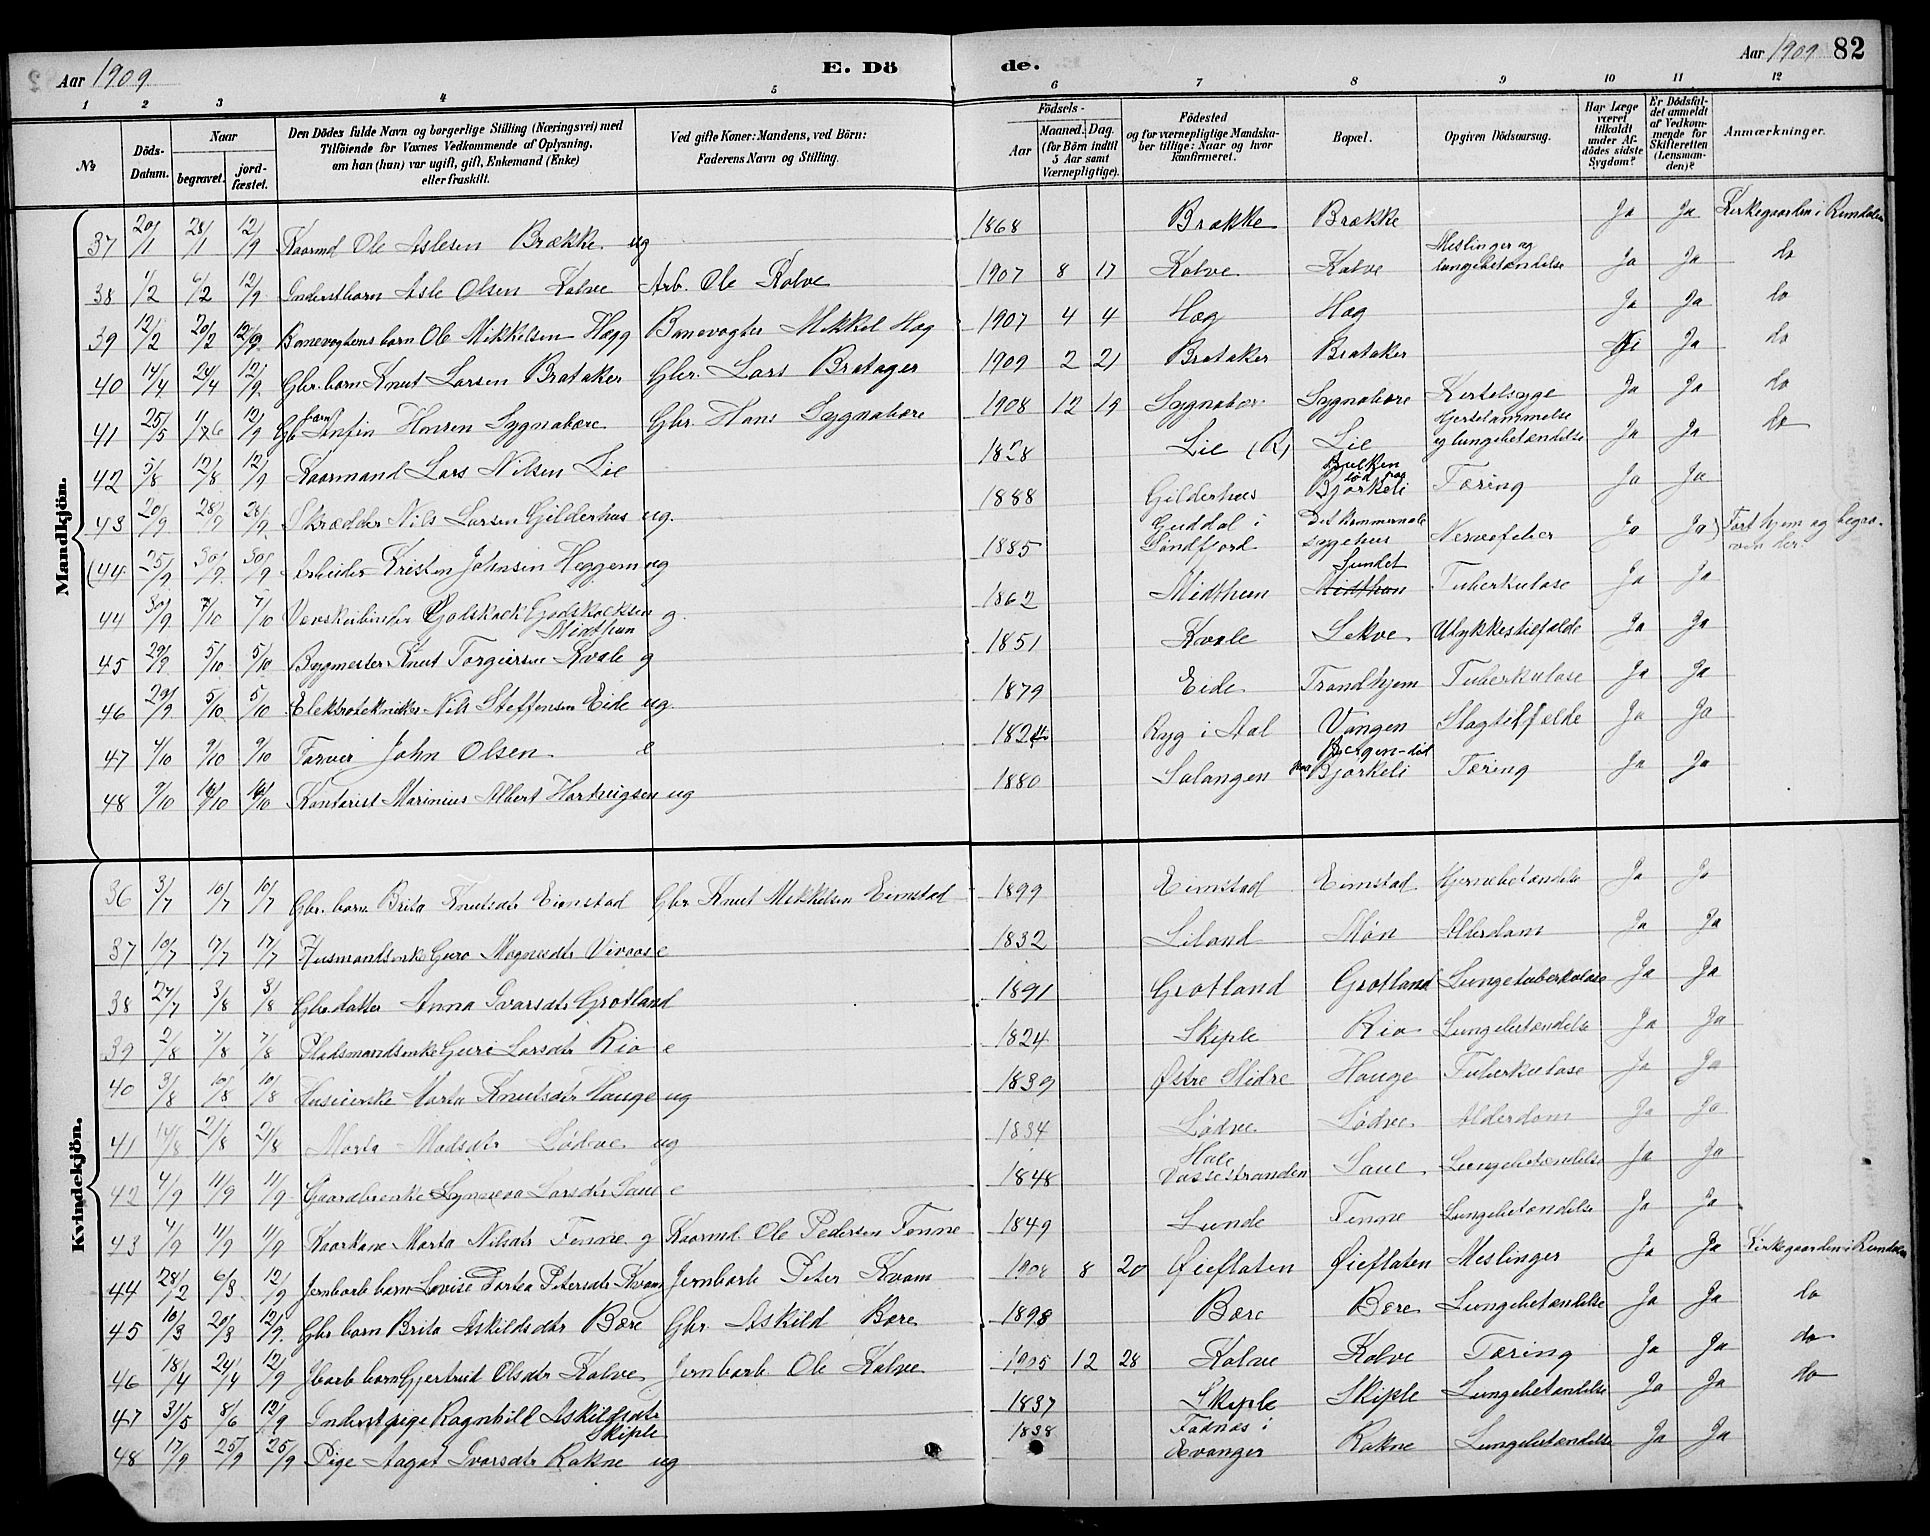 Aar 1909
E. Dö
de.
Aar 1909
82
1 2 3 4 5 6 7 8 9 10 11 12
№
Döds-Datum.
Naar
begravet.
jord-fæstet.
Den Dödes fulde Navn og borgerlige Stilling (Næringsvei) med Tilföiende for Voxnes Vedkommende af Oplysning, om han (hun) var ugift, gift, Enkemand (Enke) eller fraskilt.
Ved gifte Koner: Mandens, ved Börn: Faderens Navn og Stilling.
Födsels-
Aar
Maaned. Dag.
(for Börn indtil 5 Aar samt Værnepligtige).
Födested og for værnepligtige Mandskaber tillige: Naar og hvor konfirmeret.
Bopæl.
Opgiven Dödsaarsag.
Har Læge været tilkaldt under Afdödes sidste Sygdom?
Er Dödsfaldet anmeldt af Vedkommende for Skifteretten (Lensmanden)?
Anmærkninger.
Mandkjön.
37 20/1 28/1 12/9 Kaarmd Ole Aslesen Brække ug 1868 Brække Brække Ja Ja Kirkegaarden i Rundalen
38 1/2 6/2 12/9 Inderstbarn Asle Olsen Kolve Arb. Ole Kolve 1907 8 17 Kolve Kolve Meslinger og lungebetændelse Ja Ja do
39 12/2 20/2 12/9 Banevogtersbarn Ole Mikkelsen Hægg Banevogter Mikkel Hæg 1907 4 4 Hæg Hæg Ja Ja do
40 14/4 24/4 12/9 Gbr. barn Knut Larsen Brataker Gbr. Lars Bratager 1909 2 21 Brataker Brataker Nei Ja do
41 25/5 1/6 12/9 Gb barn Anfin Hansen Sygnabøre Gbr. Hans Sygnabøre 1908 12 19 Sygnabør Sygnabøre Kertelsyge Ja Ja do
42 5/8 12/8 12/9 Kaarmand Lars Nilsen Lie 1828 Lie (R) Lie Hjertelammelse og lungebetændelse Ja Ja do
43 20/9 28/9 28/9 Skrædder Nils Larsen Gilderhus ug. 1888 Gilderhus Bulken død paa Bjørkeli Tæring Ja Ja
(44 25/9 30/9 30/9 Arbeider Kristen Johnsen Heggem ug 1885 Guddal i Søndfjord Det kommunale sygehus Nervefeber Ja Ja) Ført hjem og begraven der.
44 30/9 7/10 7/10 Godskalk Godskalksen Midthun g. 1862 Midthun Sundet Midthun Tuberkulose Ja Ja
45 29/9 5/10 5/10 Bygmester Knut Torgiersen Kvale g 1851 Kvale Sekve Ulykkestilfælde Ja Ja
46 29/9 5/10 5/10 Elektrotekniker Nils Steffensen Eide ug. 1879 Eide Trondhjem Tuberkulose Ja Ja
47 4/10 9/10 9/10 Farver John Olsen e 1824 Ryg i Aal Vangen Slagtilfælde Ja Ja
48 9/10 16/10 16/10 Kontorist Marinius Albert Hartvigsen ug 1880 Salangen Bergen - død paa Bjørkeli Tæring Ja Ja
Kvindekjön.
36 3/7 10/7 10/7 Gbr. barn Brita Knutsdtr Eimstad Gbr Knut Mikkelsen Eimstad 1899 Eimstad Eimstad Hjernebetændelse Ja Ja
37 10/7 17/7 17/7 Husmandsenke Guro Magnesdtr Vivaas e 1832 Liland Møn Alderdom Ja Ja
38 27/7 3/8 3/8 Gbr datter Anna Ivarsdtr Grotland 1891 Grotland Grotland Lungetuberkulose Ja Ja
39 2/8 7/8 7/8 Pladsmandsenke Guri Larsdtr Rio e 1824 Skiple Rio Lungebetændelse Ja Ja
40 3/8 10/8 10/8 Marta Knutsdtr Hauge ug 1839 Østre Midre Hauge Tuberkulose Ja Ja
41 14/8 21/8 21/8 Marta Madsdtr Lødve ug 1834 Lødve Lødve Alderdom Ja Ja
42 4/9 11/9 11/9 Gaardbrenke Synneva Larsdtr Saue e 1848 Hole Vossestranden Saue Lungebetændelse Ja Ja
43 4/9 11/9 11/9 Kaarkone Marta Nilsdtr Fenne g Kaarmd. Ole Pedersen Fenne 1849 Lunde Fenne Lungebetændelse Ja Ja
44 28/2 6/3 12/9 Jernbarb barn Lovise Petersdtr Kvam Jernbarb Peter Kvam 1908 8 20 Øieflaten Øieflaten Meslinger Ja Ja Kirkegaarden i Rundalen
45 10/3 20/3 12/9 Gbr barn Brita Askildsdtr Børe Gbr Askild Børe 1898 Børe Børe Lungebetændelse Ja Ja do
46 18/4 24/4 12/9 Jbarb barn Gjertrud Olsdtr Kolve Jernbarb Ole Kolve 1905 12 28 Kolve Kolve Tæring Ja Ja do
47 31/5 8/6 12/9 Inderstpige Ragnhild Askildsdtr Skiple 1837 Skiple Skiple Lungebetændelse Ja Ja do
48 17/9 25/9 25/9 Pige Aagot Ivarsdtr Rokne ug 1838 Evanger Rokne Lungebetændelse Ja Ja